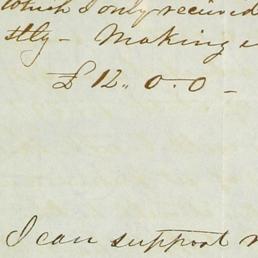 which I only received
stly - Making
£ 12.. 0.. 0 -
I can support